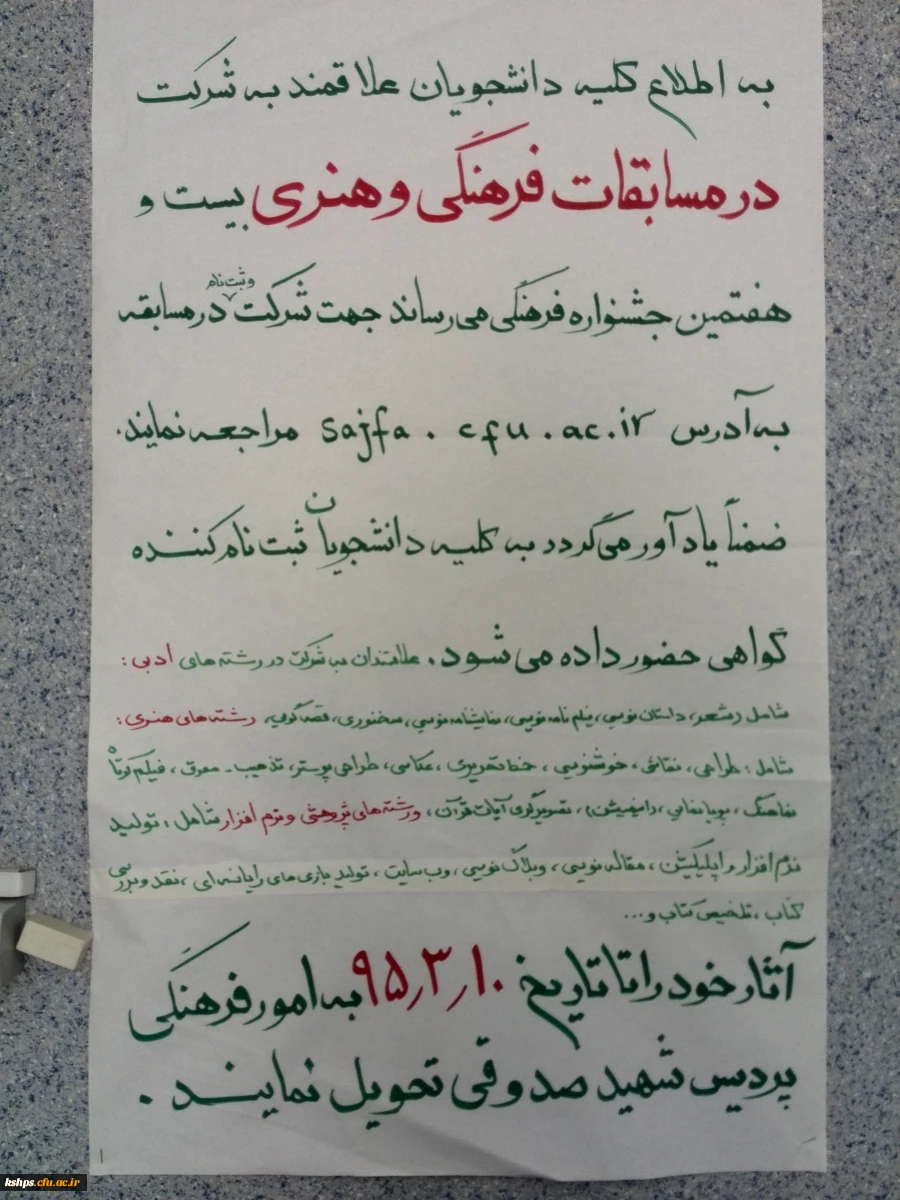 به اطلاع کلیه دانشجویان علاقمند به شرکت
در مسابقات فرهنگی و هنری بیست و
هفتمین جشنواره فرهنگی می‌رساند جهت شرکت و ثبت نام در مسابقه
به آدرس sajfa.cfu.ac.ir مراجعه نمایند.
ضمناً یادآور می‌گردد به کلیه دانشجویان ثبت نام کننده
گواهی حضور داده می‌شود. علاقمندان به شرکت در رشته‌های ادبی:
شامل: شعر، داستان نویسی، فیلم نامه نویسی، نمایشنامه نویسی، سخنوری، قصه گویی، رشته‌های هنری:
شامل: طراحی، نقاشی، خوشنویسی، خط تحریری، عکاسی، طراحی پوستر، تذهیب - معرق، فیلم کوتاه
نماهنگ، پویانمایی، (انیمیشن)، تصویرگری آیات قرآن، و رشته‌های پژوهشی و نرم افزار شامل: تولید
نرم افزار و اپلیکیشن، مقاله نویسی، وبلاگ نویسی، وب سایت، تولید بازی‌های رایانه‌ای، نقد و بررسی
کتاب، تلخیص کتاب و...
آثار خود را تا تاریخ ۹۵/۳/۱۰ به امور فرهنگی
پردیس شهید صدوقی تحویل نمایند.
kshps.cfu.ac.ir